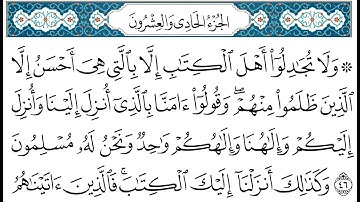 الجزء الحادي والعشرون
۞ وَلَا تُجَٰدِلُوٓا۟ أَهْلَ ٱلْكِتَٰبِ إِلَّا بِٱلَّتِى هِىَ أَحْسَنُ إِلَّا
ٱلَّذِينَ ظَلَمُوا۟ مِنْهُمْ ۖ وَقُولُوٓا۟ ءَامَنَّا بِٱلَّذِىٓ أُنزِلَ إِلَيْنَا وَأُنزِلَ
إِلَيْكُمْ وَإِلَٰهُنَا وَإِلَٰهُكُمْ وَٰحِدٌ وَنَحْنُ لَهُۥ مُسْلِمُونَ
٤٦ وَكَذَٰلِكَ أَنزَلْنَآ إِلَيْكَ ٱلْكِتَٰبَ ۚ فَٱلَّذِينَ ءَاتَيْنَٰهُمُ